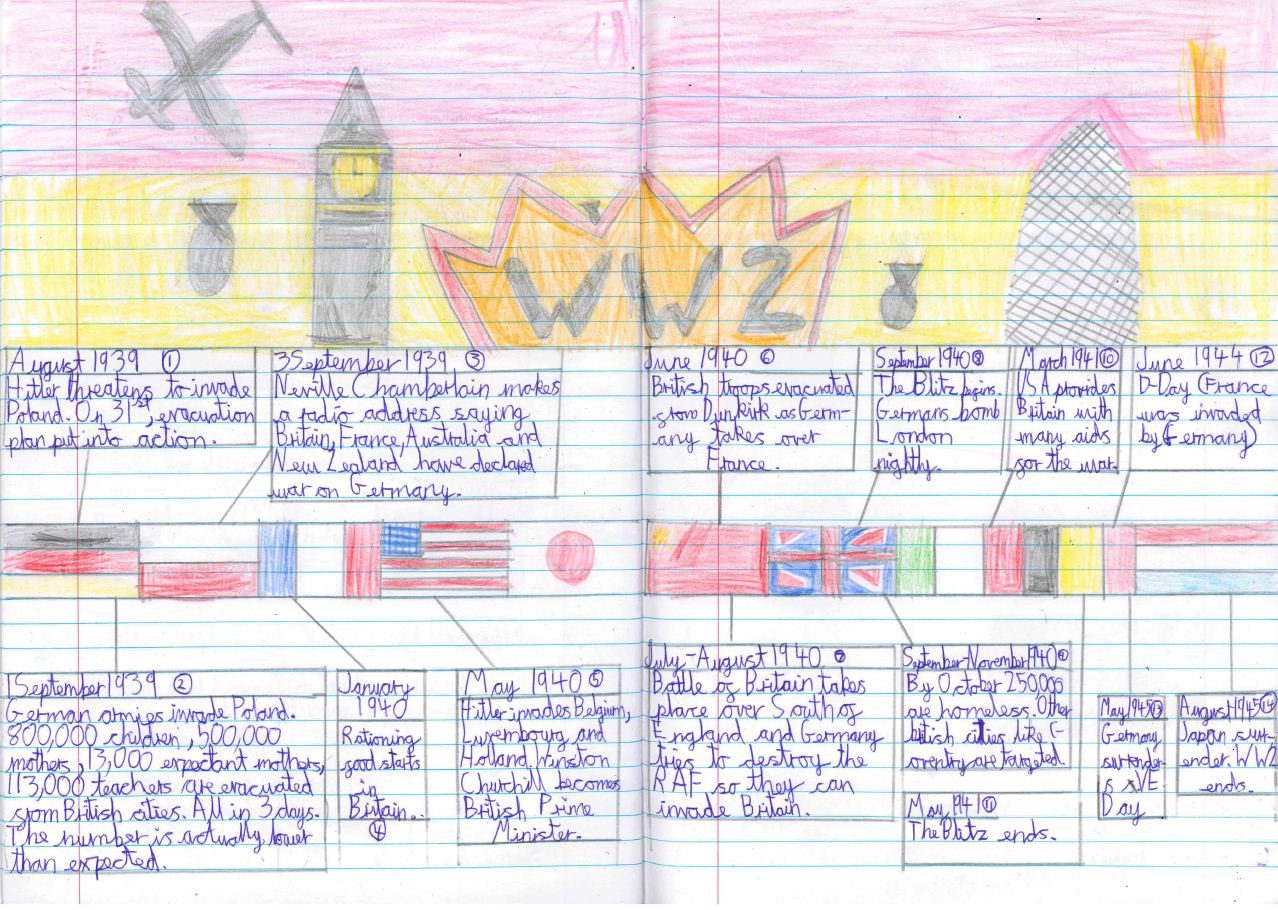 WW2
August 1939 ①
Hitler threatens to invade
Poland. On 31st, evacuation
plan put into action.
3 September 1939 ③
Neville Chamberlain makes
a radio address saying
Britain, France, Australia and
New Zealand have declared
war on Germany.
June 1940 ⑥
British troops evacuated
from Dunkirk as Germ-
any takes over
France.
September 1940 ⑧
The Blitz begins.
Germans bomb
London
nightly.
March 1941 ⑩
USA provides
Britain with
many aids
for the war.
June 1944 ⑫
D-Day (France
was invaded
by Germany)
1 September 1939 ②
German armies invade Poland.
800,000 children, 500,000
mothers, 13,000 expectant mothers,
113,000 teachers are evacuated
from British cities. All in 3 days.
The number is actually lower
than expected.
January
1940
Rationing
food starts
in
Britain.
④
May 1940 ⑤
Hitler invades Belgium,
Luxembourg and
Holland. Winston
Churchill becomes
British Prime
Minister.
July-August 1940 ⑦
Battle of Britain takes
place over South of
England and Germany
tries to destroy the
RAF so they can
invade Britain.
September-November 1940 ⑨
By October 250,000
are homeless. Other
british cities like C-
oventry are targeted.
May 1941 ⑪
The Blitz ends.
May 1945 ⑬
Germany
surrender
s VE
Day
August 1945 ⑭
Japan surr-
ender. WW2
ends.